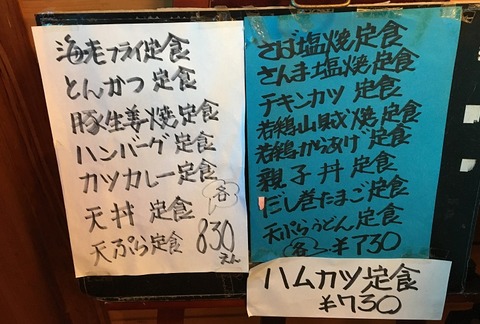 海老フライ定食
とんかつ定食
豚生姜焼定食
ハンバーグ定食
カツカレー定食
天丼 定食
天ぷら定食
各
830えん
さば塩焼定食
さんま塩焼定食
チキンカツ 定食
若鶏山賊焼定食
若鶏からあげ定食
親子丼 定食
だし巻たまご定食
天ぷらうどん定食
各 ¥730
ハムカツ定食
¥730